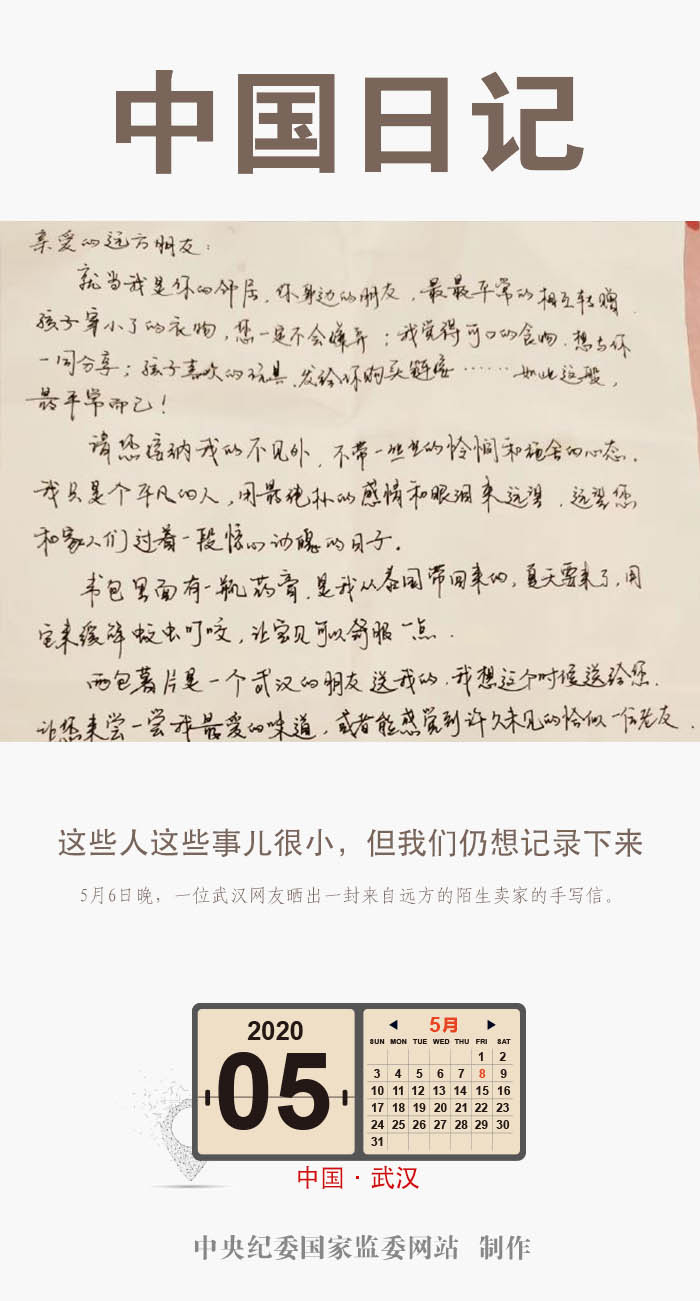 中国日记
亲爱的远方朋友：
就当我是你的邻居，你身边的朋友，最最平常的相互转赠．
孩子穿小了的衣物，您一定不会嫌弃；我觉得可口的食物．想与你
一同分享；孩子喜欢的玩具，发给你购买链接……如此这般，
最平常而已！
请您接纳我的不见外，不带一丝丝的怜悯和施舍的心态．
我只是个平凡的人，用最纯朴的感情和眼泪来远望，远望您
和家人们过着一段惊心动魄的日子。
书包里面有一瓶药膏，是我从泰国带回来的，夏天要来了，用
它来缓解蚊虫叮咬，让宝贝可以舒服一点．
两包薯片是一个武汉的朋友送我的．我想这个时候送给您．
让您来尝一尝我最爱的味道，或者能感觉到许久未见的恰似一位老友．
这些人这些事儿很小，但我们仍想记录下来
5月6日晚，一位武汉网友晒出一封来自远方的陌生卖家的手写信。
2020
05
5月
SUN MON TUE WED THU FRI SAT
1 2
3 4 5 6 7 8 9
10 11 12 13 14 15 16
17 18 19 20 21 22 23
24 25 26 27 28 29 30
31
中国·武汉
中央纪委国家监委网站 制作